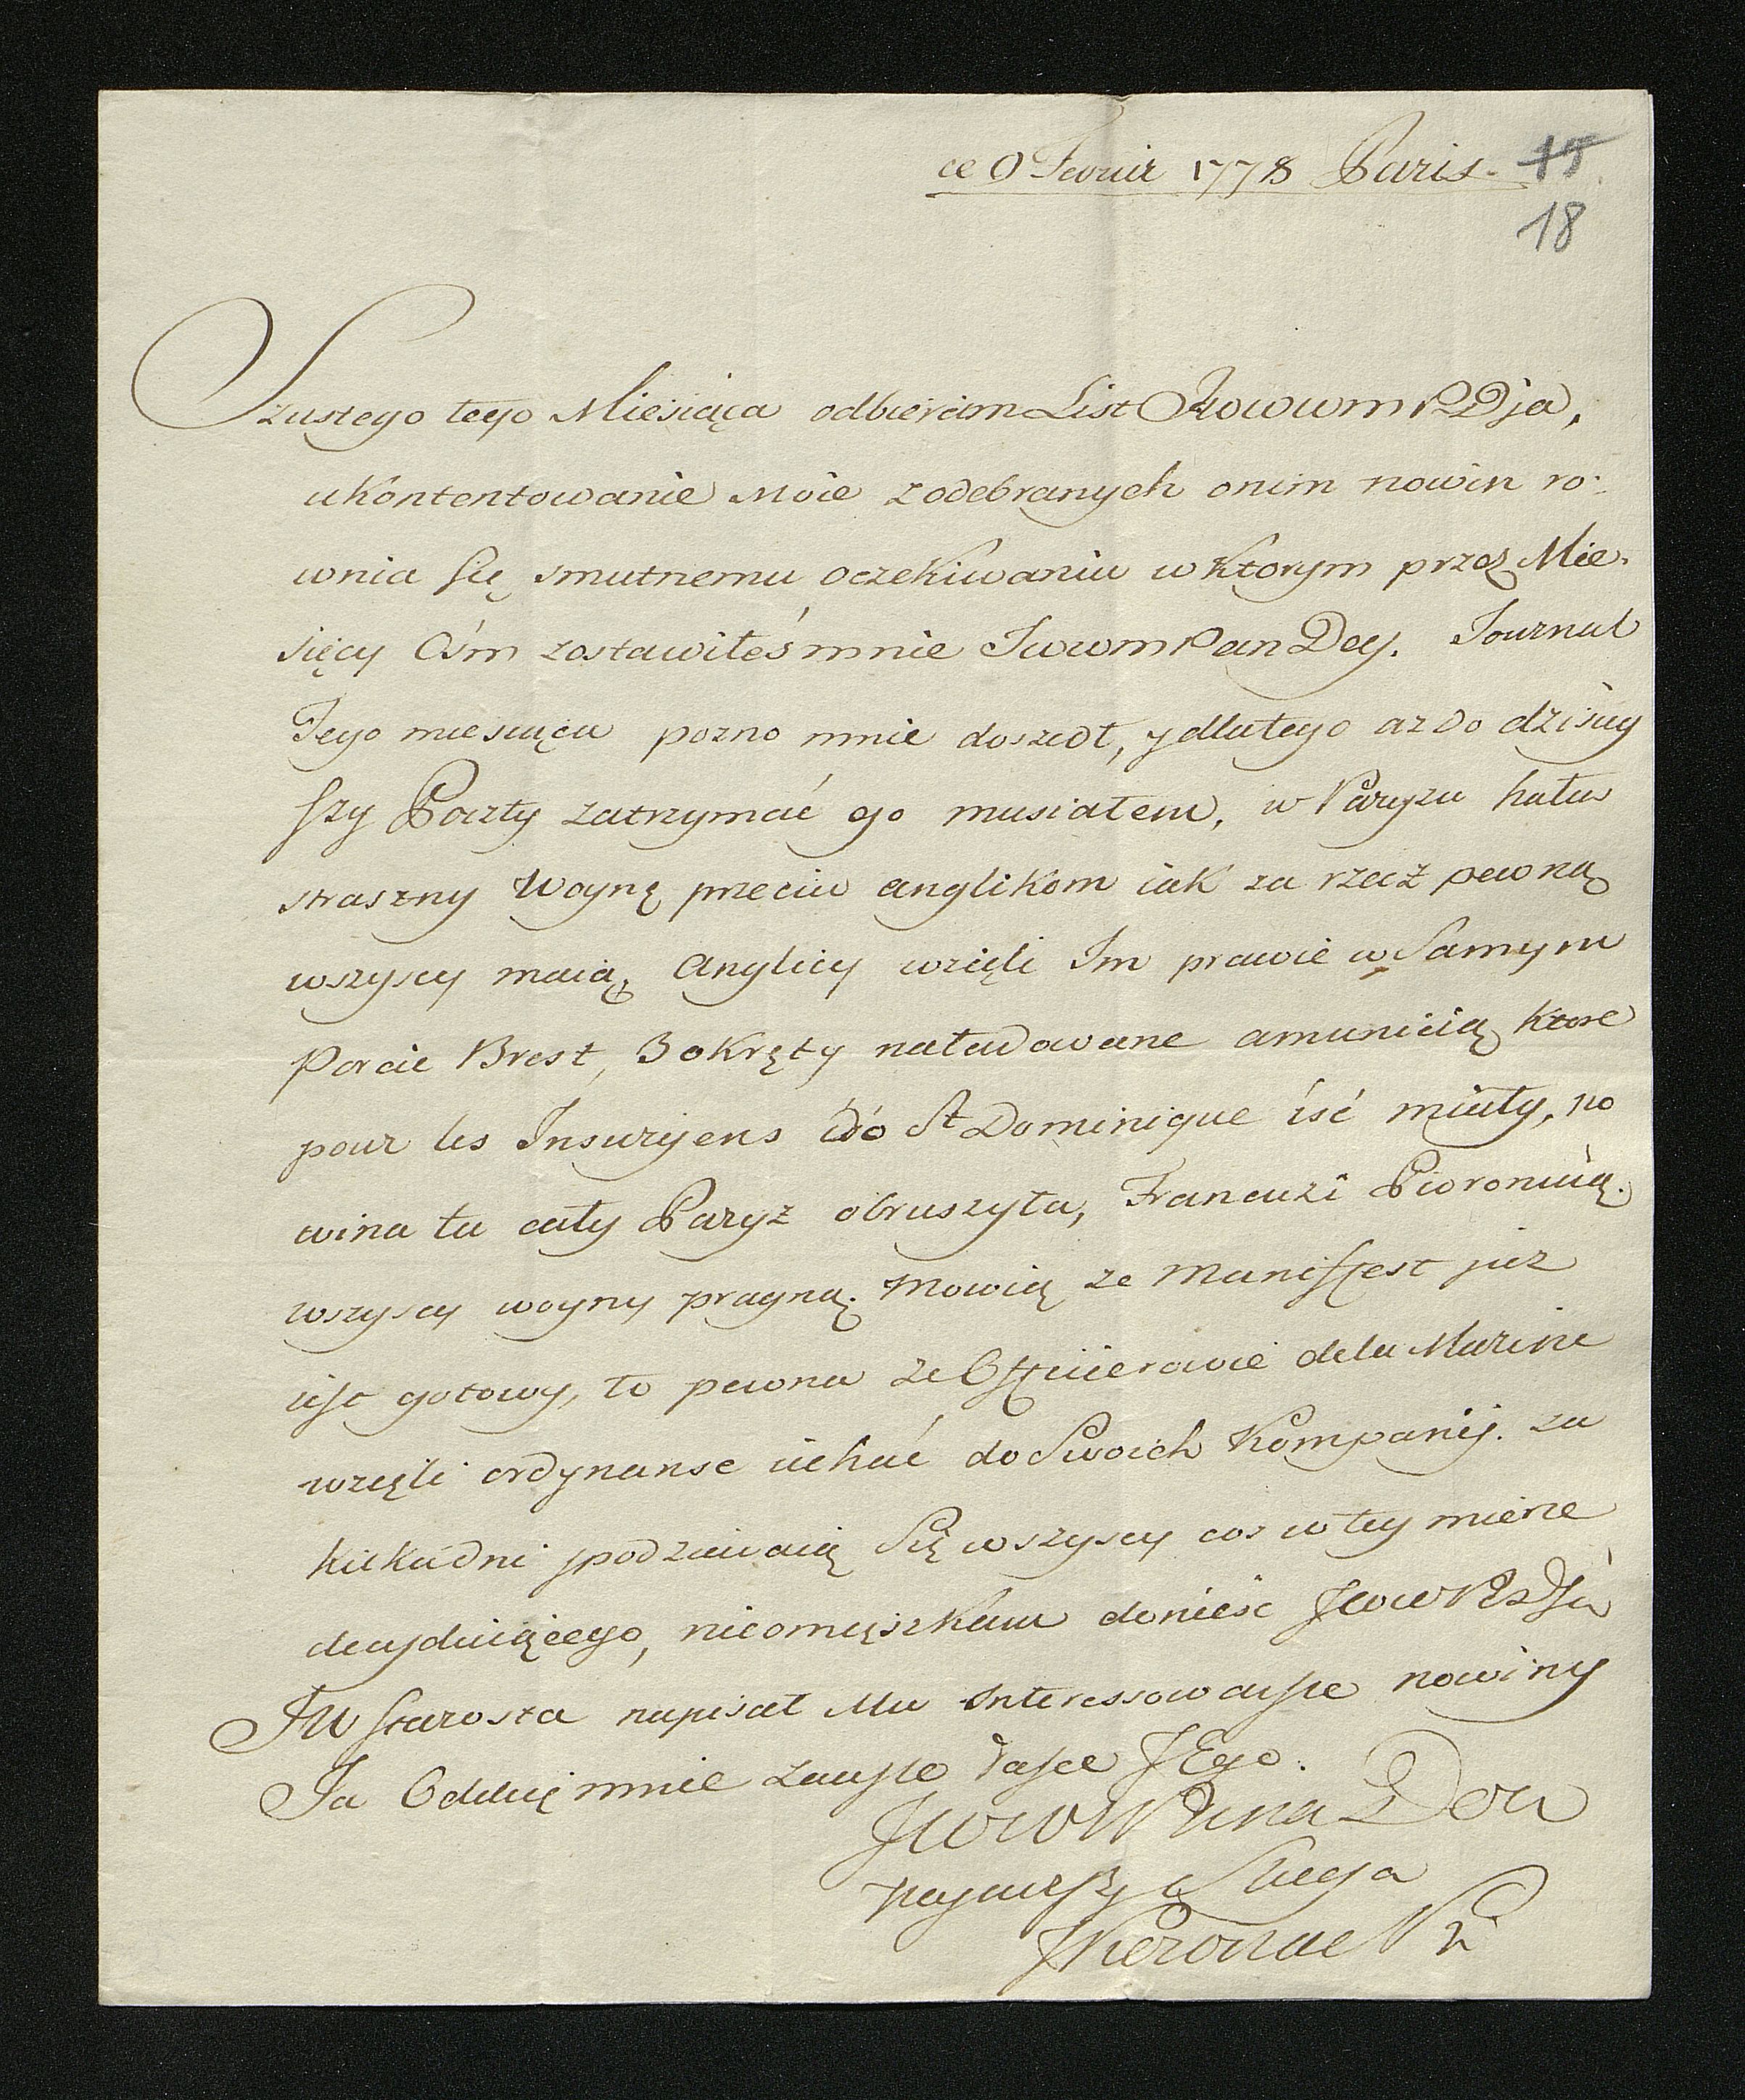 ce 9 Fevrier 1778 Paris.
15
18
Szustego tego Miesiąca odbieram List JWWWM PDja,
ukontentowanie Moie z odebranych onim nowin ro:
wnia się smutnemu oczekiwaniu w ktorym przez Mie:
sięcy Ośm zostawiłeś mnie JWWM Pan Dey. Journal
Tego miesiąca pozno mnie doszedł, y dlatego az do dzisiey
szy Poczty zatrzymać go musiałem, w Paryzu hałas
straszny Woynę preciw anglikom iak za rzecz pewną
wszyscy maią, Anglicy wzięli Im prawie w Samym
Porcie Brest, 3 okręty naładowane amunicią ktore
pour les Insurjens do St Dominique iść miały, no
wina ta cały Paryz obruszyła, Francuzi Pioronuią.
wszyscy woyny pragną. Mowią ze Maniffest już
iest gotowy, to pewna ze Officierowie de la Marine
wzięli ordynanse iechać do Swoich Kompanij. za
kilka dni spodziewaią Się wszyscy cos w tey mierze
decyduiącego, nieomięszkam donieśc JWW PDja
JW Starosta napisał Mu Interessowaysze nowiny
Ja Oddaię mnie zawsze łasce JEgo.
JWWW Pana Do
nayniższy Sługa